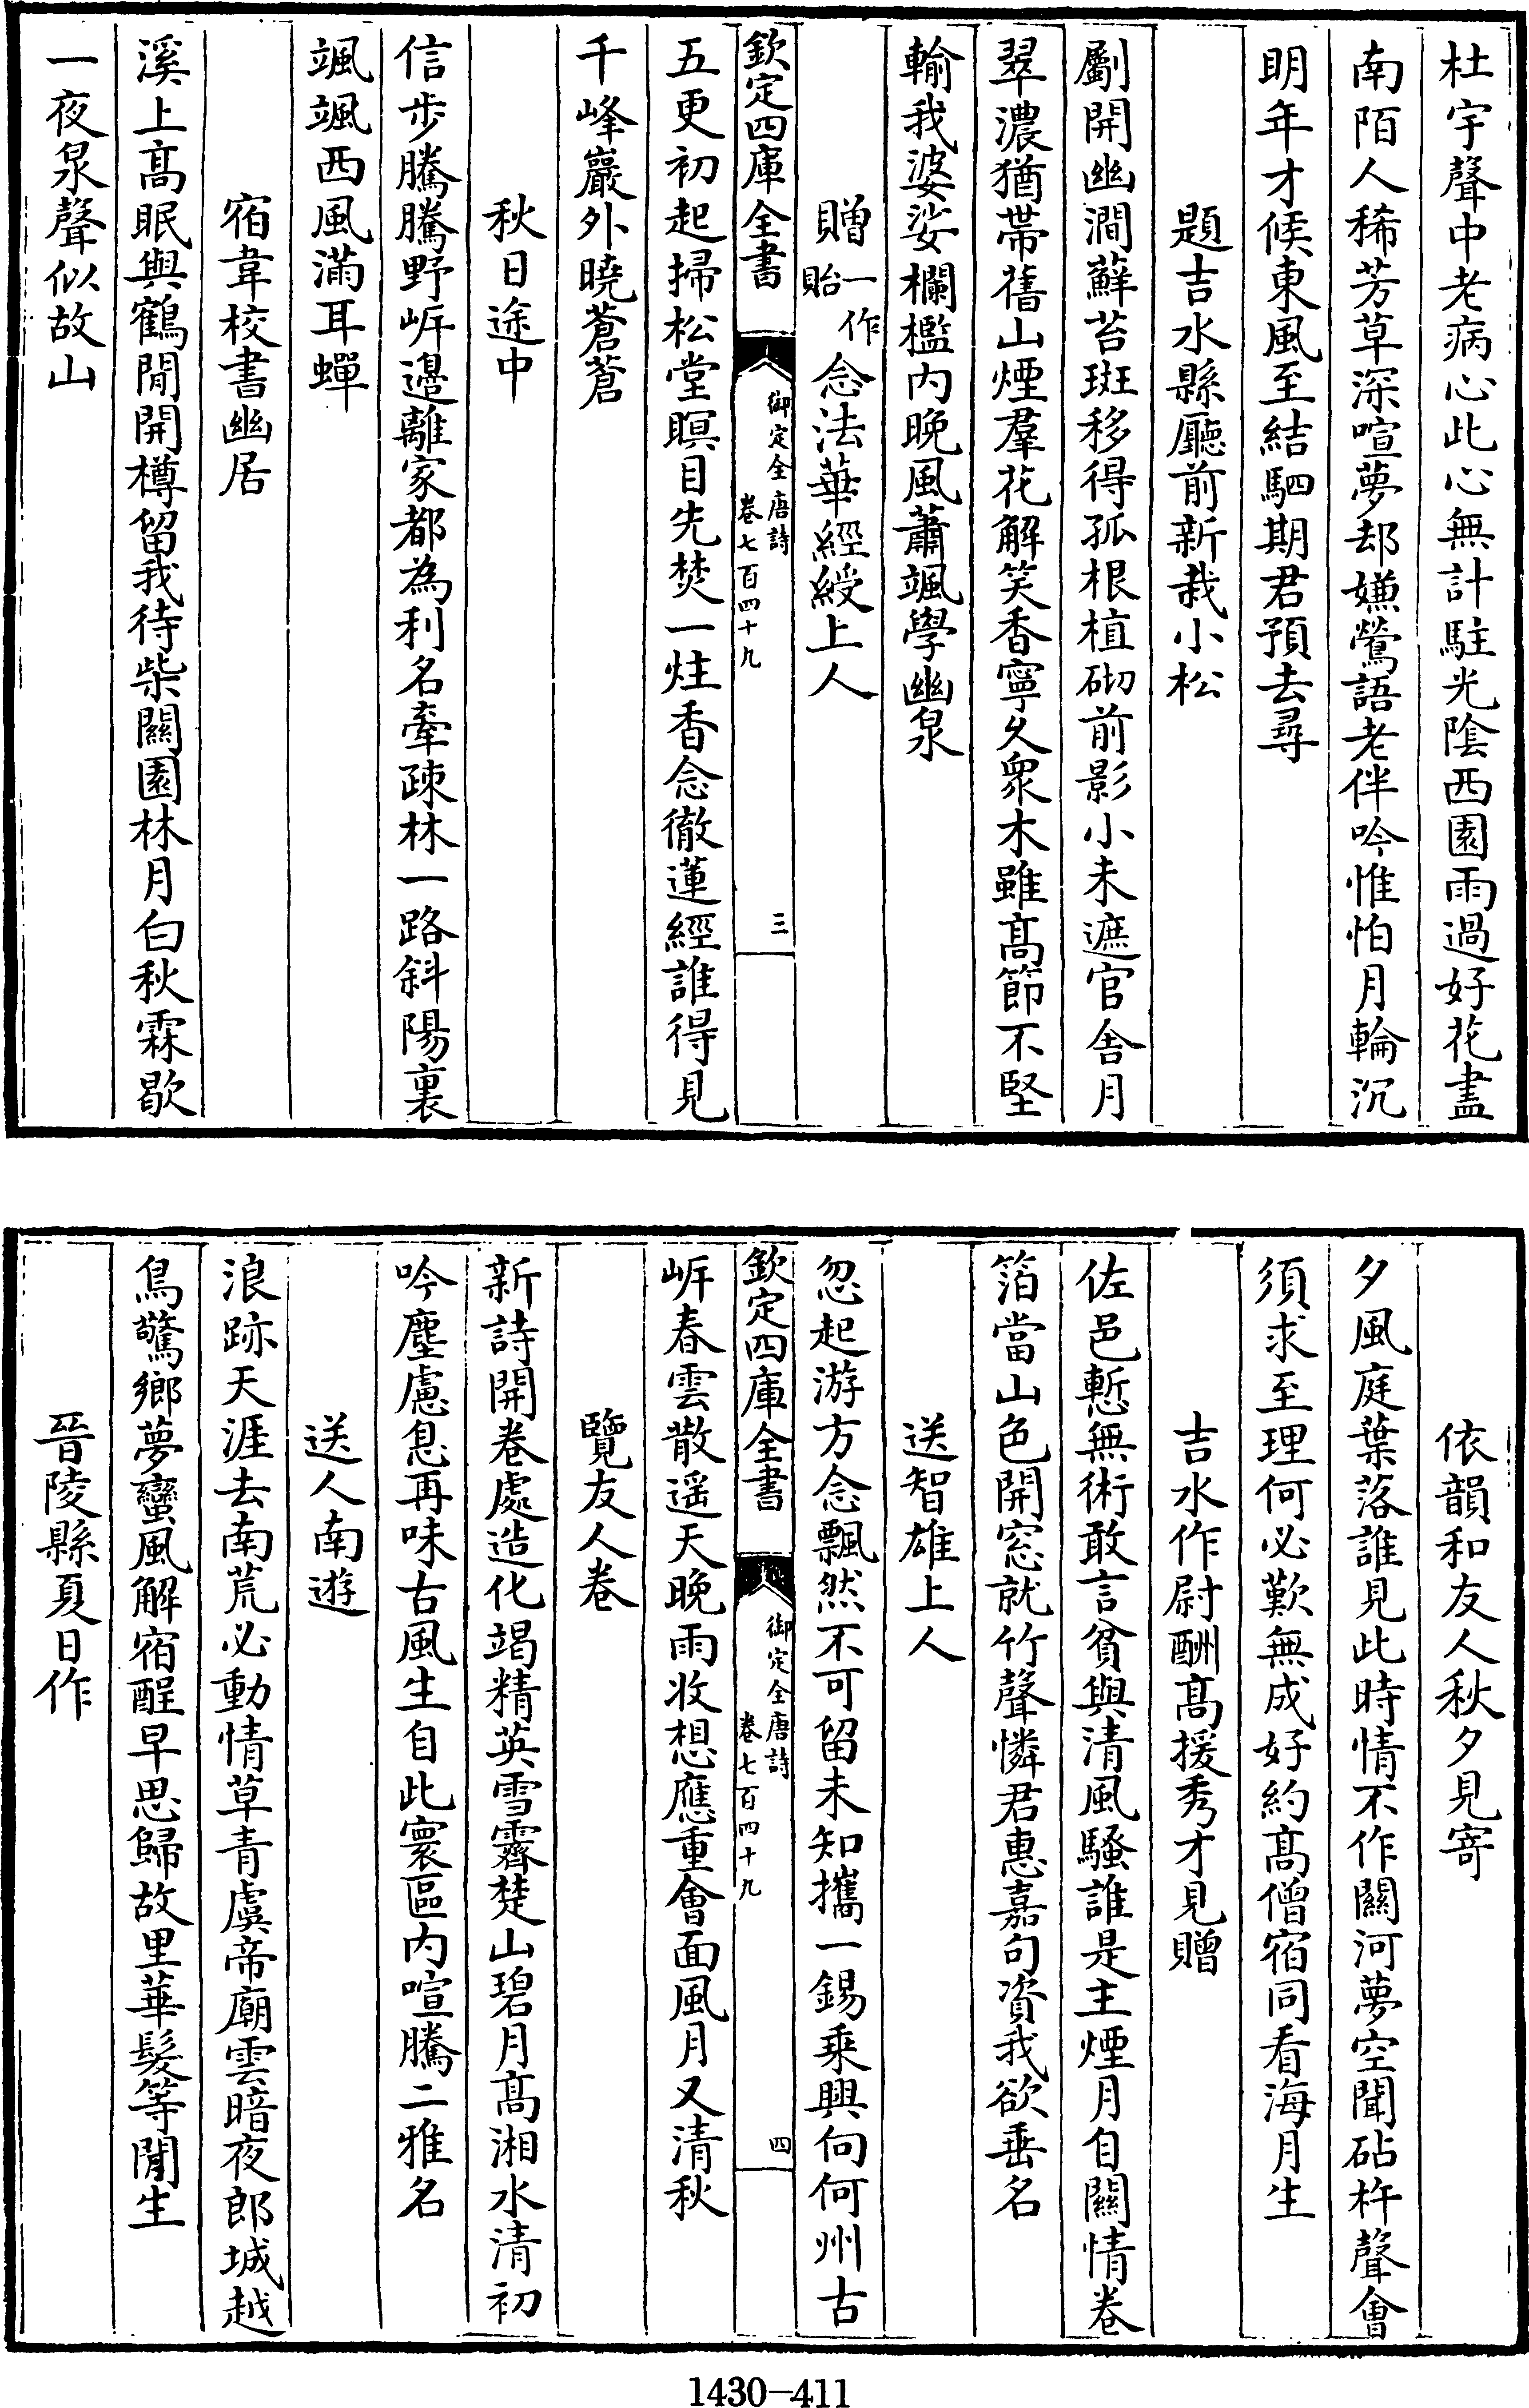 杜宇聲中老病心此心無計駐光陰西園雨過好花盡
南陌人稀芳草深喧夢却嫌鶯語老伴吟惟怕月輪沉
明年才候東風至結駟期君預去尋
題吉水縣廳前新栽小松
劚開幽澗蘚苔斑移得孤根植砌前影小未遮官舎月
翠濃猶帶舊山煙羣花解笑香寧久衆木雖髙節不堅
輸我婆娑欄檻内晩風蕭颯學幽泉
贈一作貽念法華經綬上人
欽定四庫全書
御定全唐詩
卷七百四十九
三
五更初起掃松堂瞑目先焚一炷香念徹蓮經誰得見
千峰巖外曉蒼蒼
秋日途中
信步騰騰野岸邉離家都為利名牽疎林一路斜陽裏
颯颯西風滿耳蟬
宿韋校書幽居
溪上髙眠與鶴閒開樽留我待柴關園林月白秋霖歇
一夜泉聲似故山
依韻和友人秋夕見寄
夕風庭葉落誰見此時情不作關河夢空聞砧杵聲會
須求至理何必歎無成好約髙僧宿同看海月生
吉水作尉酬髙援秀才見贈
佐邑慙無術敢言貧與清風騷誰是主煙月自關情卷
箔當山色開窓就竹聲憐君惠嘉句資我欲垂名
送智雄上人
忽起游方念飄然不可留未知攜一錫乘興向何州古
欽定四庫全書
御定全唐詩
卷七百四十九
四
岸春雲散遥天晩雨收想應重會面風月又清秋
覽友人卷
新詩開卷處造化竭精英雪霽楚山碧月髙湘水清初
吟塵慮息再味古風生自此寰區内喧騰二雅名
送人南遊
浪跡天涯去南荒必動情草青虞帝廟雲暗夜郎城越
鳥驚鄉夢蠻風解宿酲早思歸故里華髮等閒生
晉陵縣夏日作
1430-411